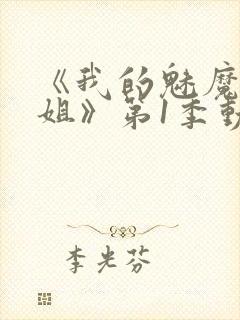 《我的魅魔
姐》第1季動
李光芬